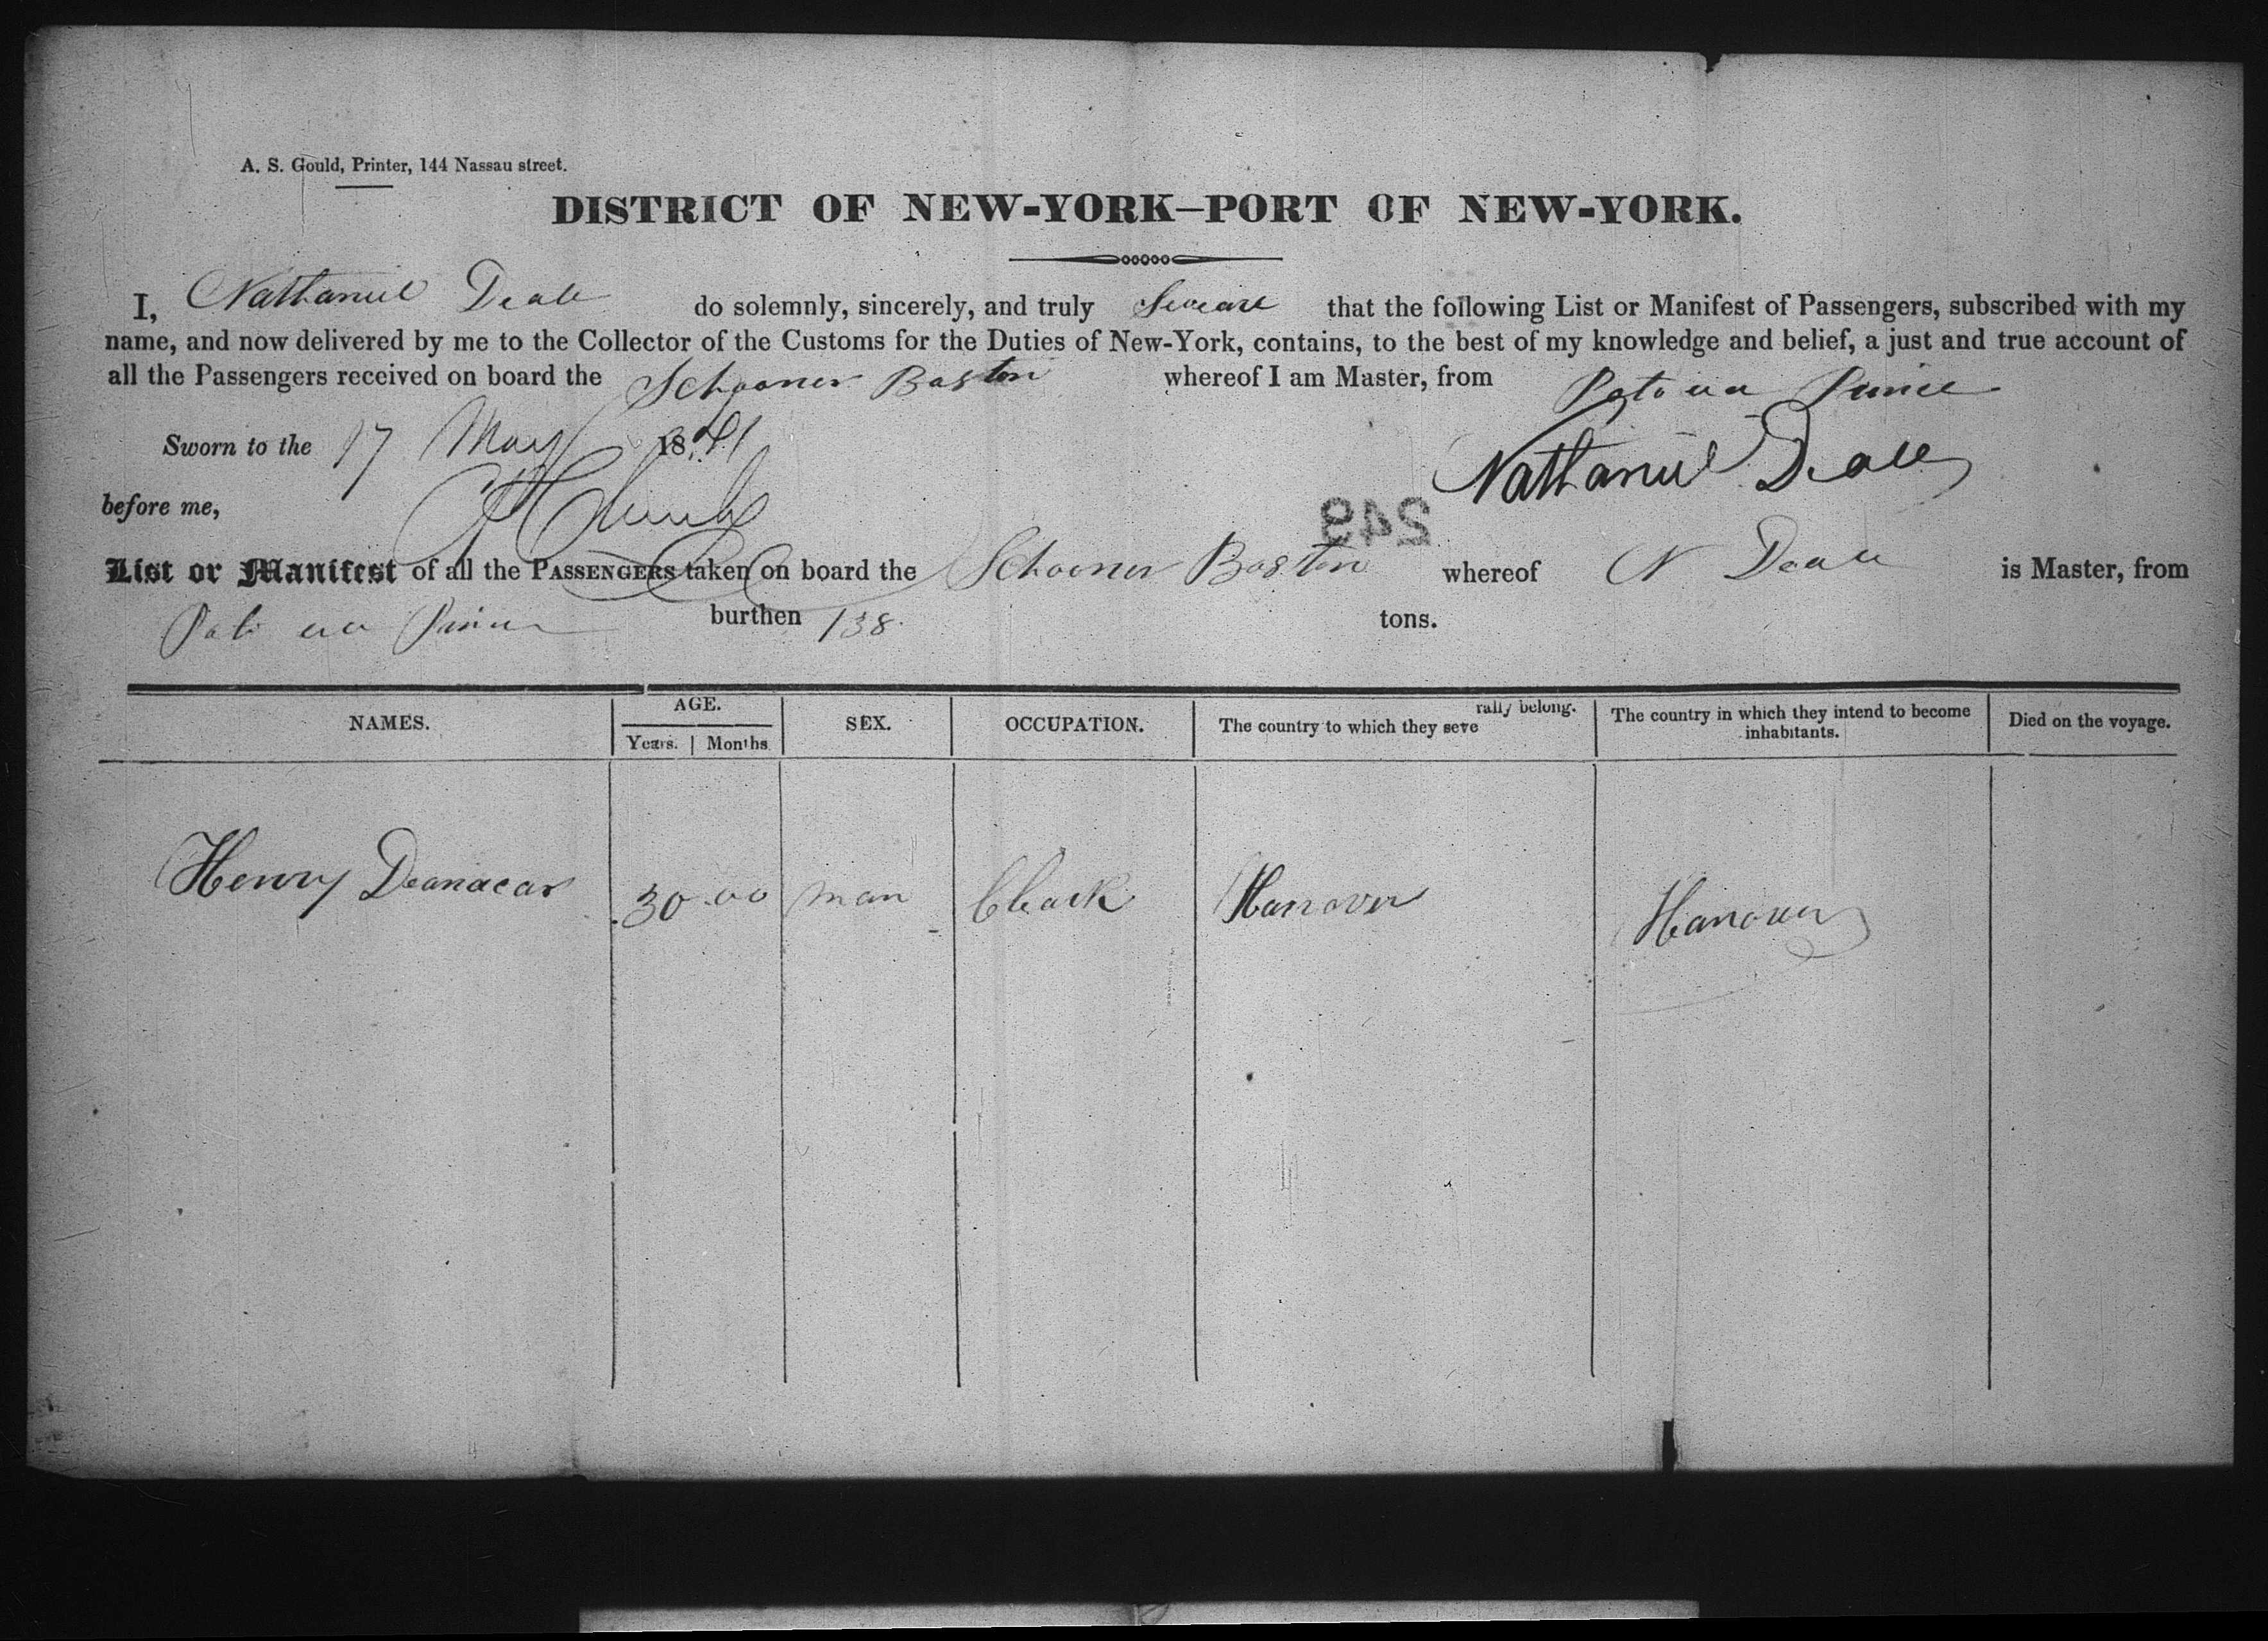 A. S. Gould, Printer, 144 Nassau street.
DISTRICT OF NEW-YORK—PORT OF NEW-YORK.
I, Nathaniel Deale do solemnly, sincerely, and truly Sweare that the following List or Manifest of Passengers, subscribed with my
name, and now delivered by me to the Collector of the Customs for the Duties of New-York, contains, to the best of my knowledge and belief, a just and true account of
all the Passengers received on board the Schooner Boston whereof I am Master, from Prince
Sworn to the 17 May 1841
Nathaniel Deale
before me,
249
List or Manifest of all the PASSENGERS taken on board the Schooner Boston whereof N Deale is Master, from
burthen 138 tons.
NAMES. AGE. SEX. OCCUPATION. The country to which they severally belong. The country in which they intend to become inhabitants. Died on the voyage.
Years. Months
Henry 30 00 man Hanover Hanover